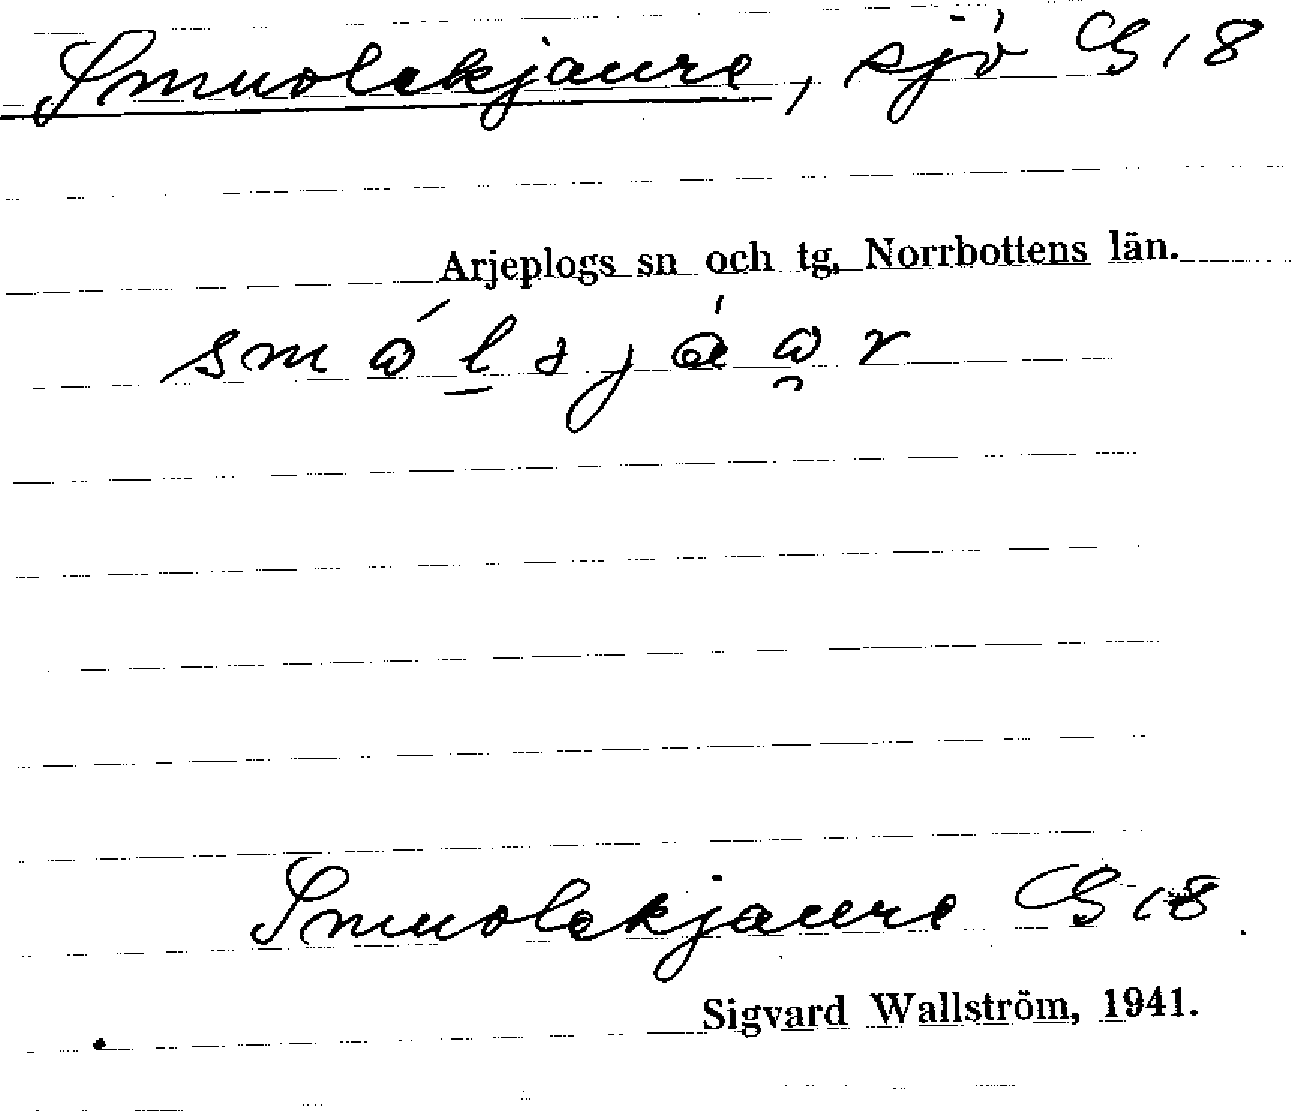 Smuolekjaure, sjö G 18
Arjeplogs sn och tg, Norrbottens län.
Smuolekjaure G 18
Sigvard Wallström, 1941.